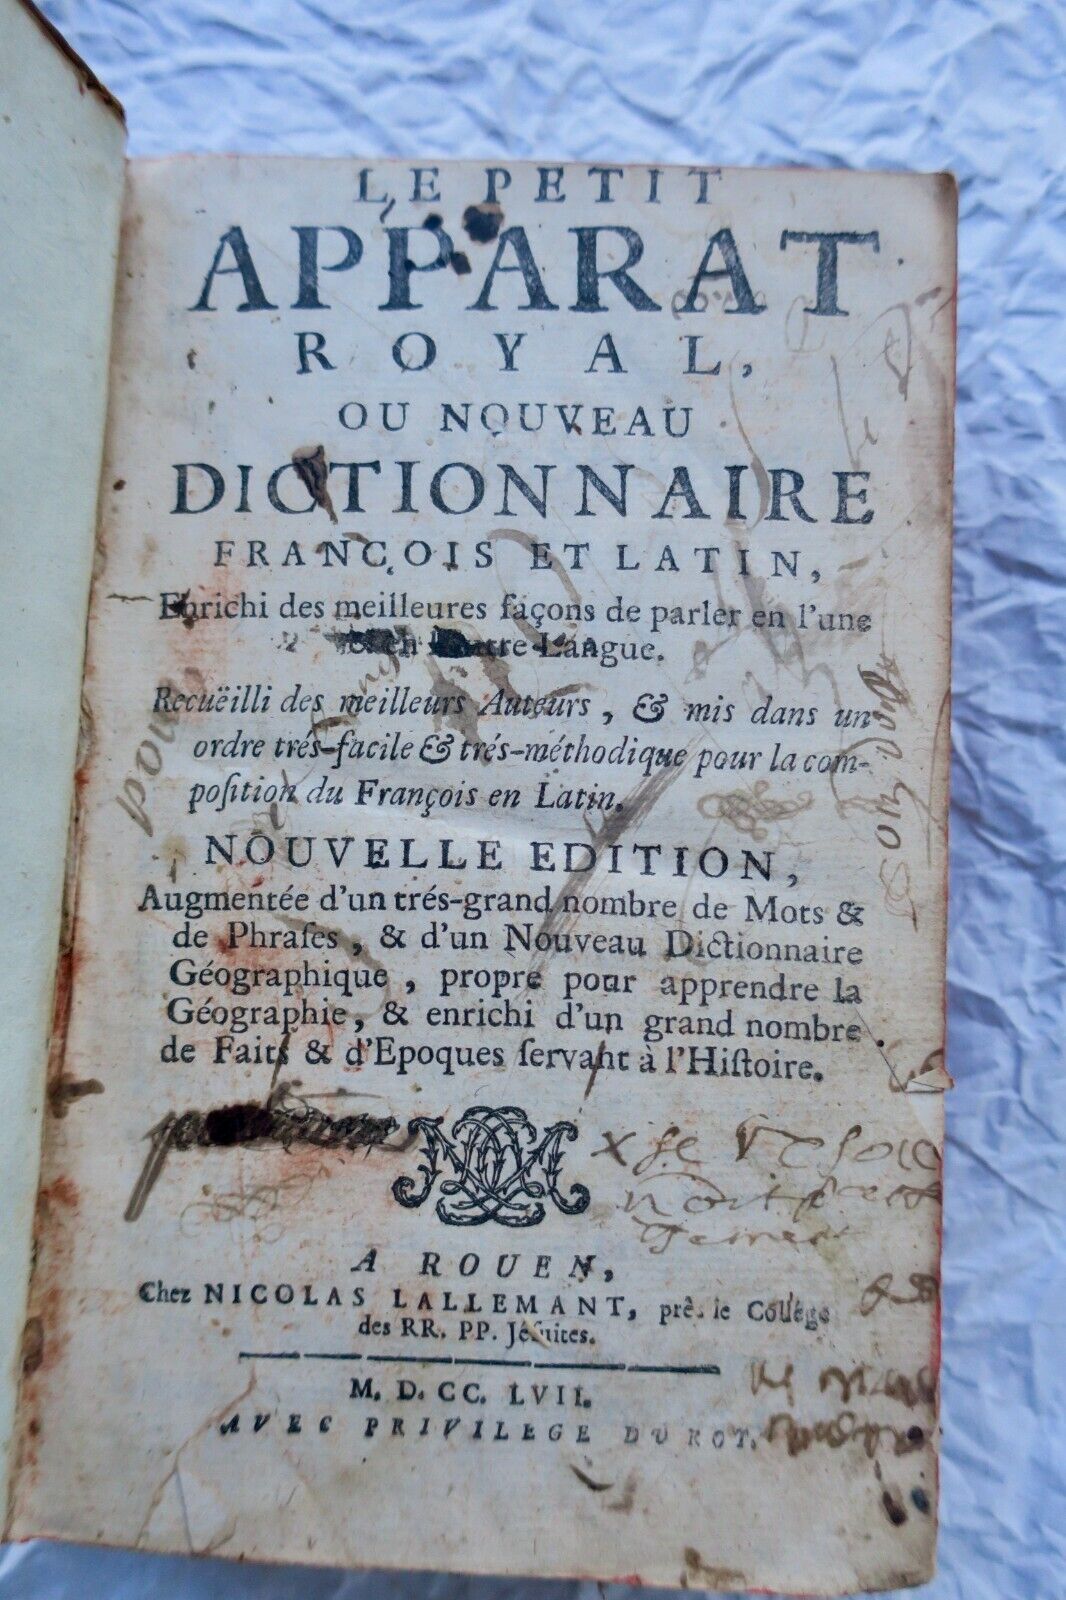 LE PETIT
APPARAT
ROYAL,
OU NOUVEAU
DICTIONNAIRE
FRANÇOIS ET LATIN,
Enrichi des meilleures façons de parler en l'une
& en l'autre Langue.
Recuëilli des meilleurs Auteurs, & mis dans un
ordre trés-facile & trés-méthodique pour la com-
poſition du François en Latin.
NOUVELLE EDITION,
Augmentée d'un trés-grand nombre de Mots &
de Phraſes, & d'un Nouveau Dictionnaire
Géographique, propre pour apprendre la
Géographie, & enrichi d'un grand nombre
de Faits & d'Epoques ſervant à l'Hiſtoire.
A ROUEN,
Chez NICOLAS LALLEMANT, prês le Collége
des RR. PP. Jéſuites.
M. D. CC. LVII.
AVEC PRIVILEGE DU ROY.
pour